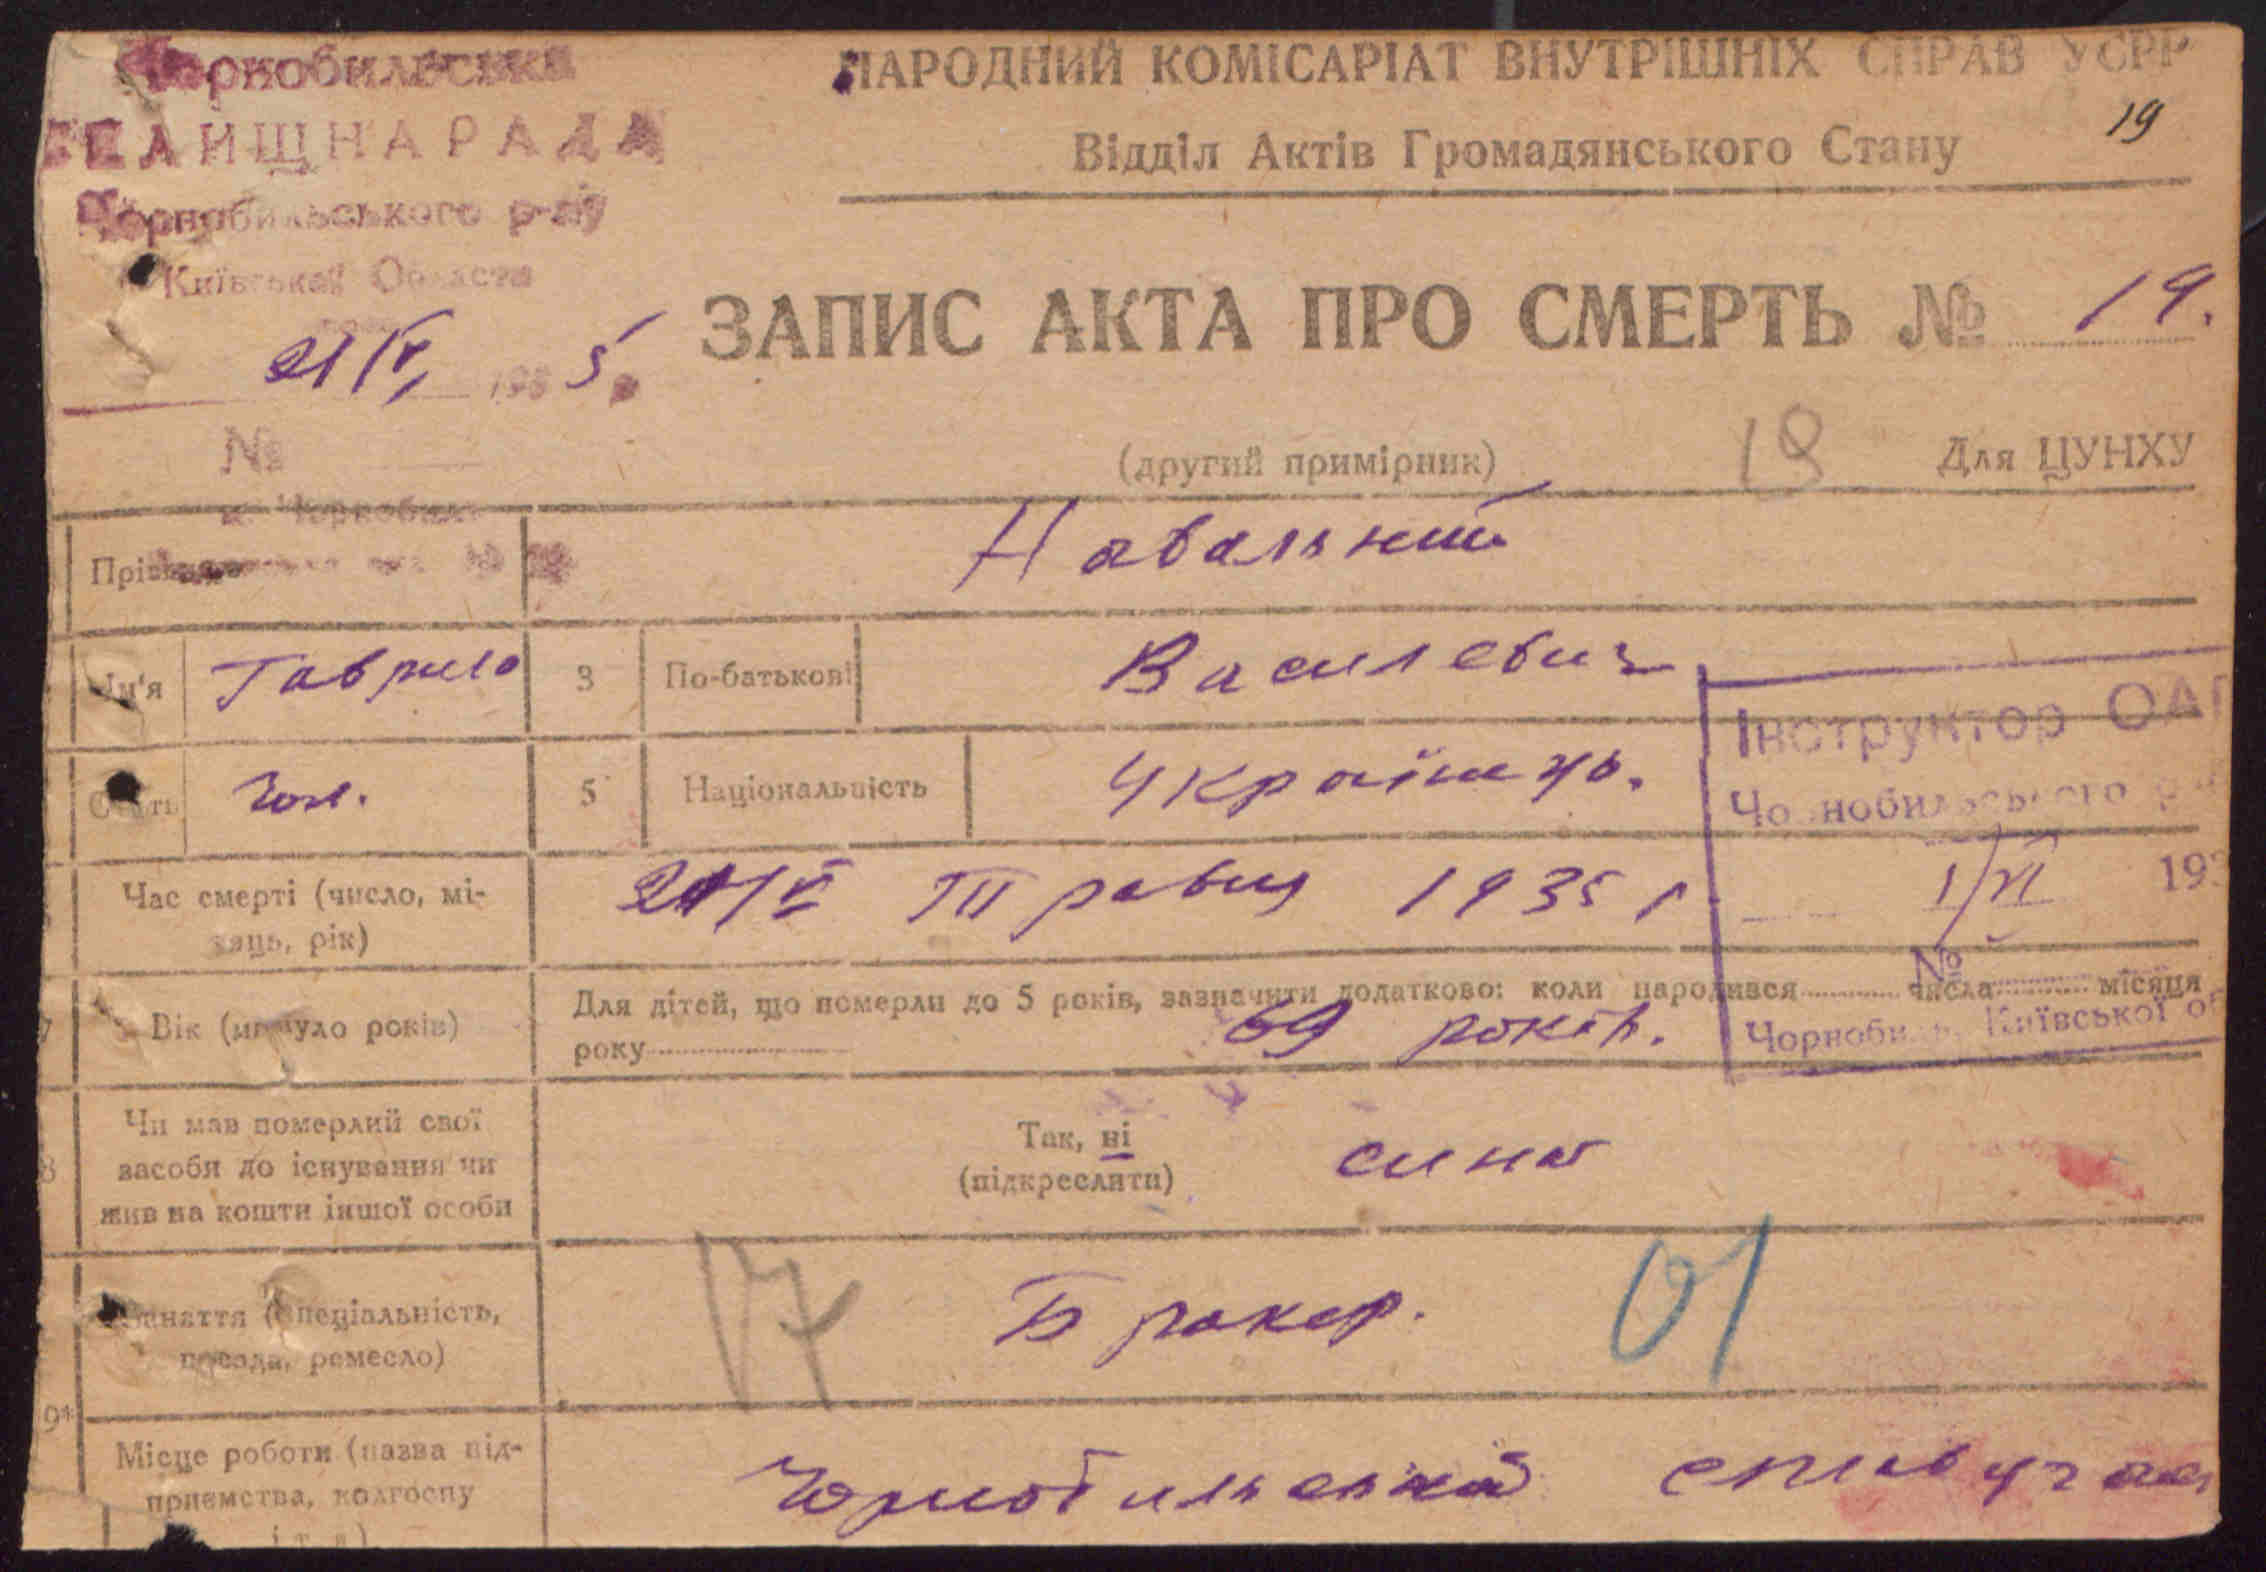 Чорнобильська
СЕЛИЩНА РАДА
Чорнобильського р-ну
Київської Області
21/V, 1935.
№
м. Чорнобиль
НАРОДНИЙ КОМІСАРІАТ ВНУТРІШНІХ СПРАВ УСРР
19
Відділ Актів Громадянського Стану
ЗАПИС АКТА ПРО СМЕРТЬ № 19.
(другий примірник) 19 Для ЦУНХУ
Прізвище Навальний
Ім'я Гаврило 3 По-батькові Василевич
Стать Чол. 5 Національність Українць.
Інструктор ОАГ
Чорнобильського р
1/VI 193
№
Чорнобиль, Київської об
Час смерті (число, мі-
сяць, рік) 21/V Травня 1935 р
7 Вік (минуло років) Для дітей, що померли до 5 років, зазначити додатково: коли народився числа місяця
року 69 років.
8 Чи мав померлий свої
засоби до існування чи
жив на кошти іншої особи
Так, ні
(підкреслити) сина
Заняття (спеціальність,
посада, ремесло) 17 Бракер. 01
9*
Місце роботи (назва під-
приємства, колгоспу
і т. п.)
Чорнобильська